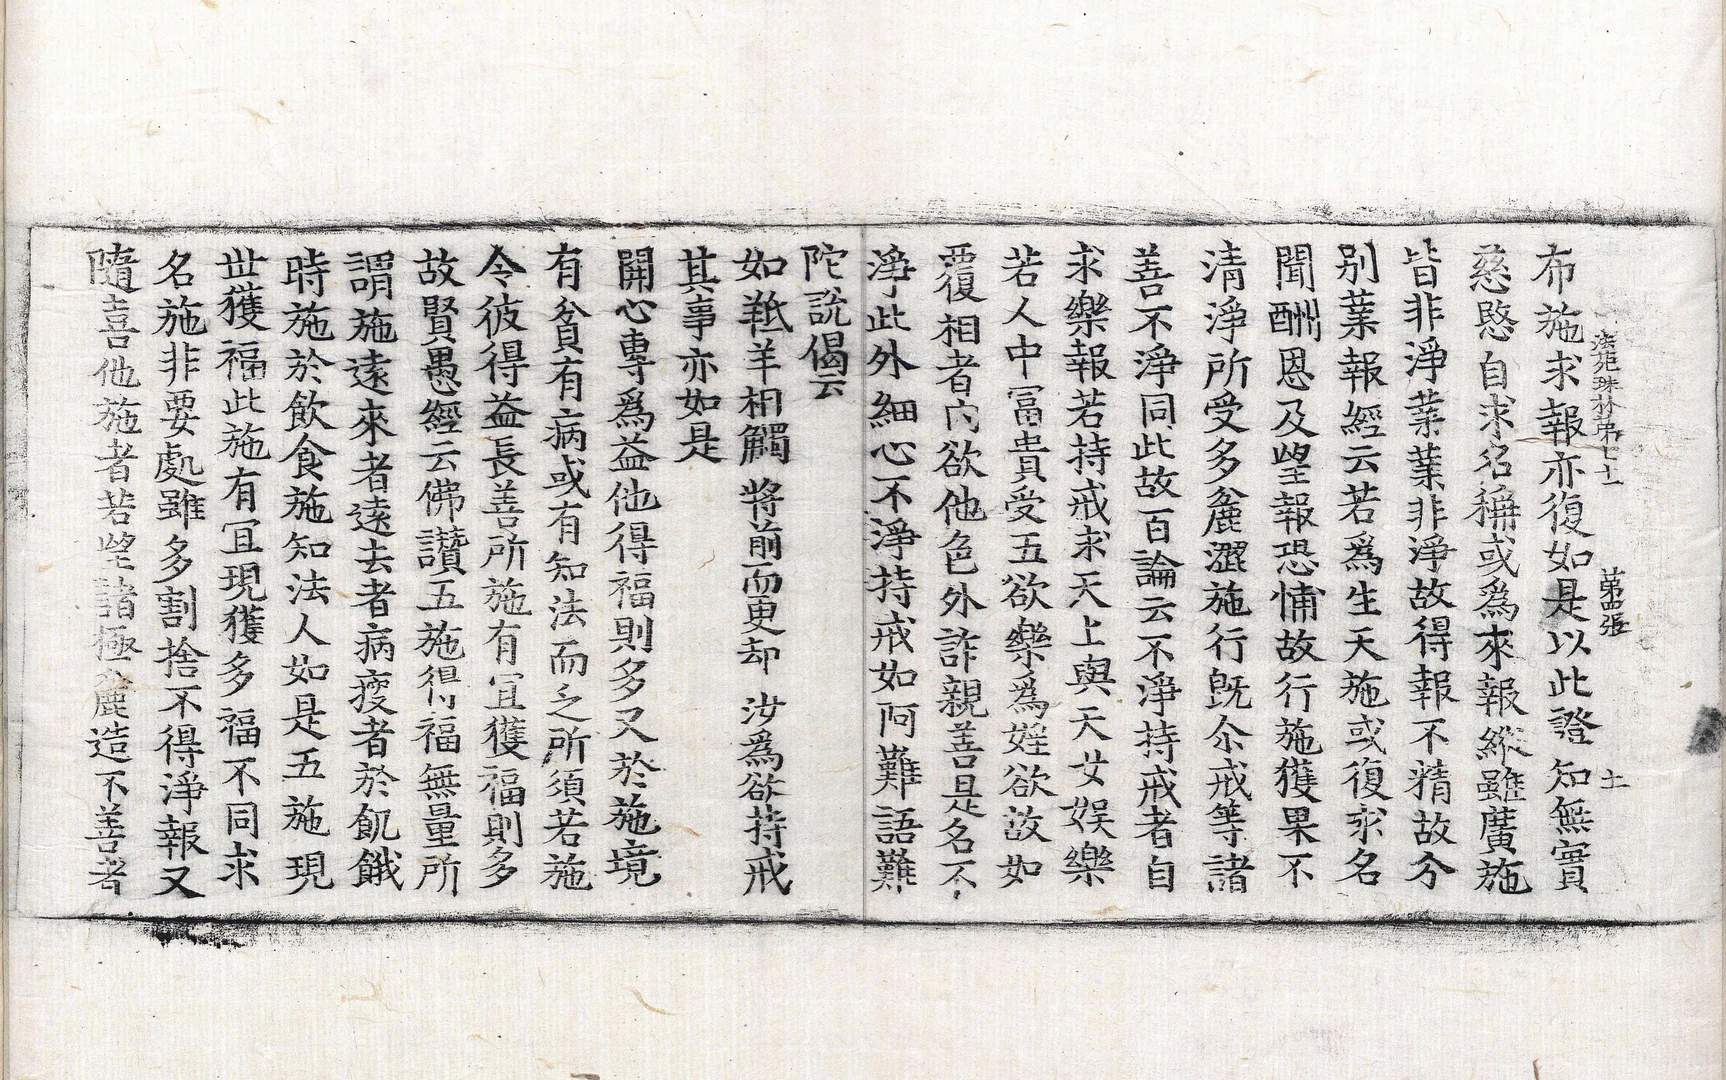 布施求報亦復如是以此證知無實
法苑珠林第七十一 第四張 土
慈愍自求名稱或爲來報縱雖廣施
皆非淨業業非淨故得報不精故分
別業報經云若爲生天施或復求名
聞酬恩及望報恐怖故行施獲果不
清淨所受多麁澀施行旣尒戒等諸
善不淨同此故百論云不淨持戒者自
求樂報若持戒求天上與天女娛樂
若人中冨貴受五欲樂爲婬欲故如
覆相者內欲他色外詐親善是名不
淨此外細心不淨持戒如阿難語難
陀說偈云
如羝羊相觸 將前而更却 汝爲欲持戒
其事亦如是
開心專爲益他得福則多又於施境
有貧有病或有知法而乏所須若施
令彼得益長善所施有冝獲福則多
故賢愚經云佛讚五施得福無量所
謂施遠來者遠去者病瘦者於飢餓
時施於飲食施知法人如是五施現
世獲福此施有冝現獲多福不同求
名施非要處雖多割捨不得淨報又
隨喜他施者若望諸極麁造不善者